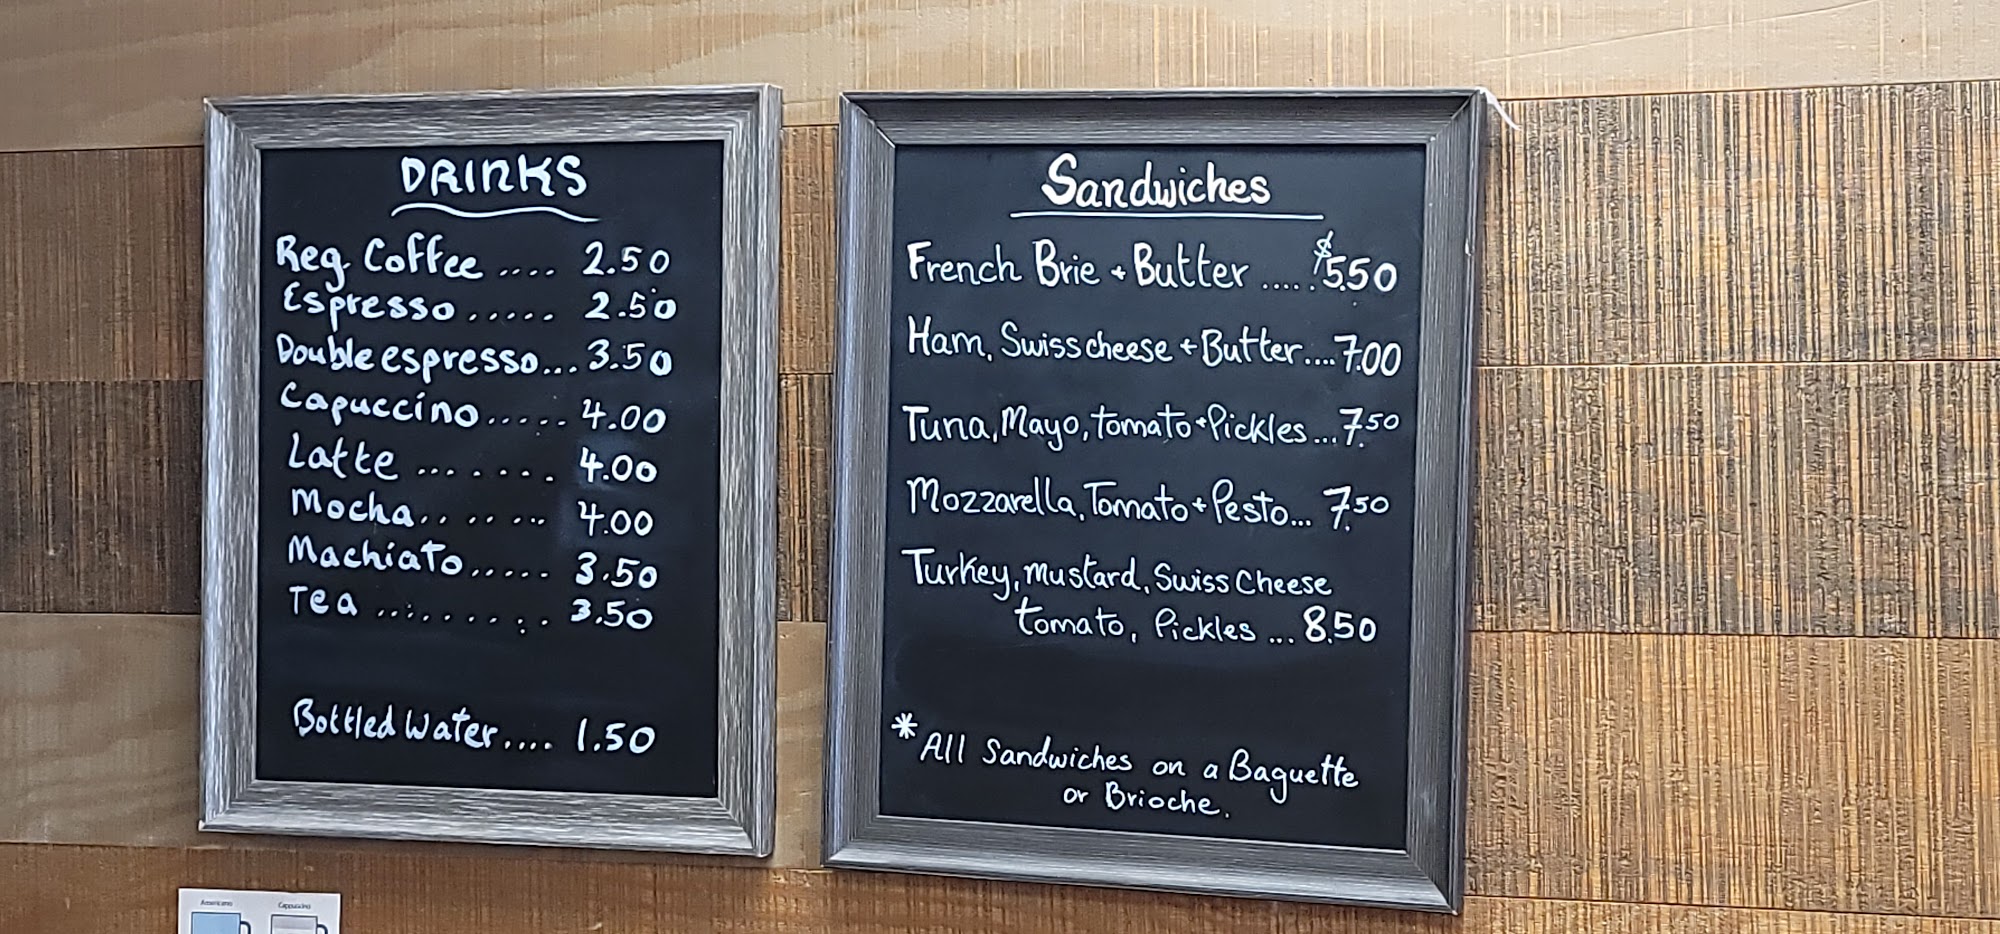 DRINKS
Reg. Coffee .... 2.50
Espresso ..... 2.50
Double espresso... 3.50
Capuccino..... 4.00
Latte ....... 4.00
Mocha....... 4.00
Machiato..... 3.50
Tea ......... 3.50
Bottled Water.... 1.50
Sandwiches
French Brie + Butter ..... $5.50
Ham, Swiss cheese + Butter.... 7.00
Tuna, Mayo, tomato + Pickles... 7.50
Mozzarella, Tomato + Pesto... 7.50
Turkey, mustard, Swiss Cheese
tomato, Pickles ... 8.50
* All Sandwiches on a Baguette
or Brioche.
Americano Cappuccino